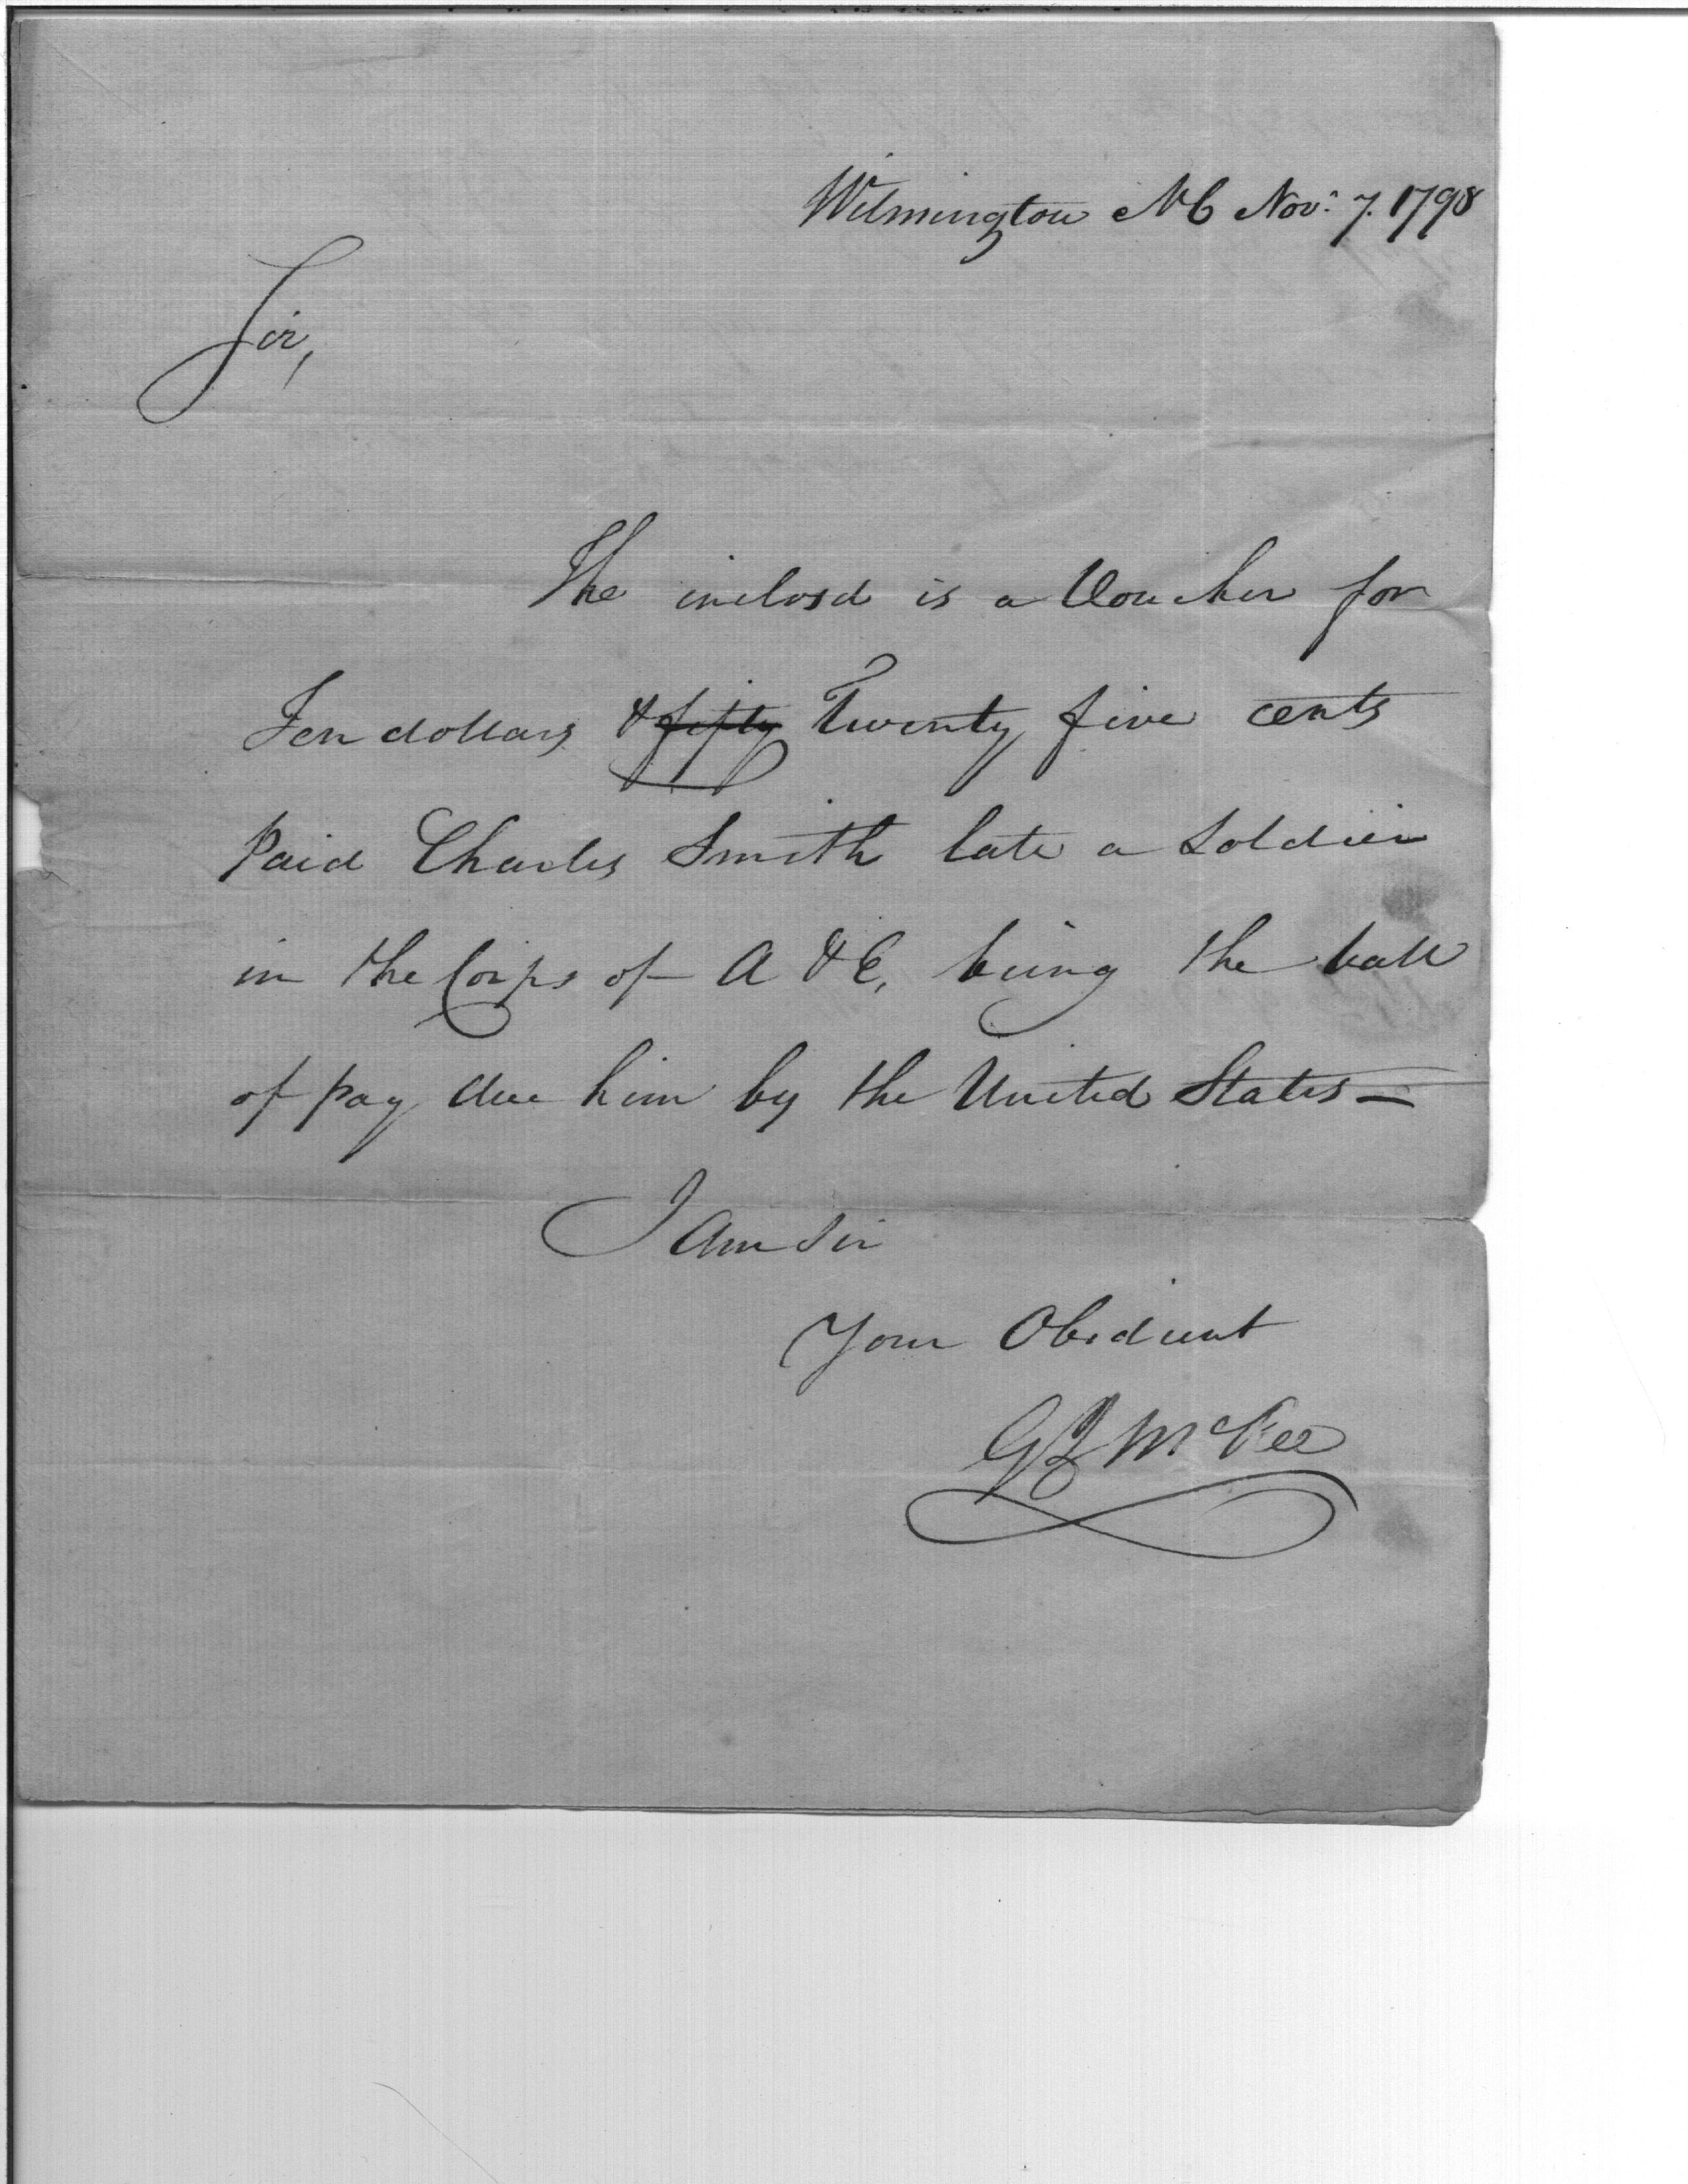 Wilmington NC Nov: 7. 1798
Sir,
The inclosd is a Voucher for
Ten dollars & fifty Twenty five cents
Paid Charles Smith late a Soldier
in the Corps of A & E, being the ball
of pay due him by the United States —
I am Sir
Your Obedient
McKee